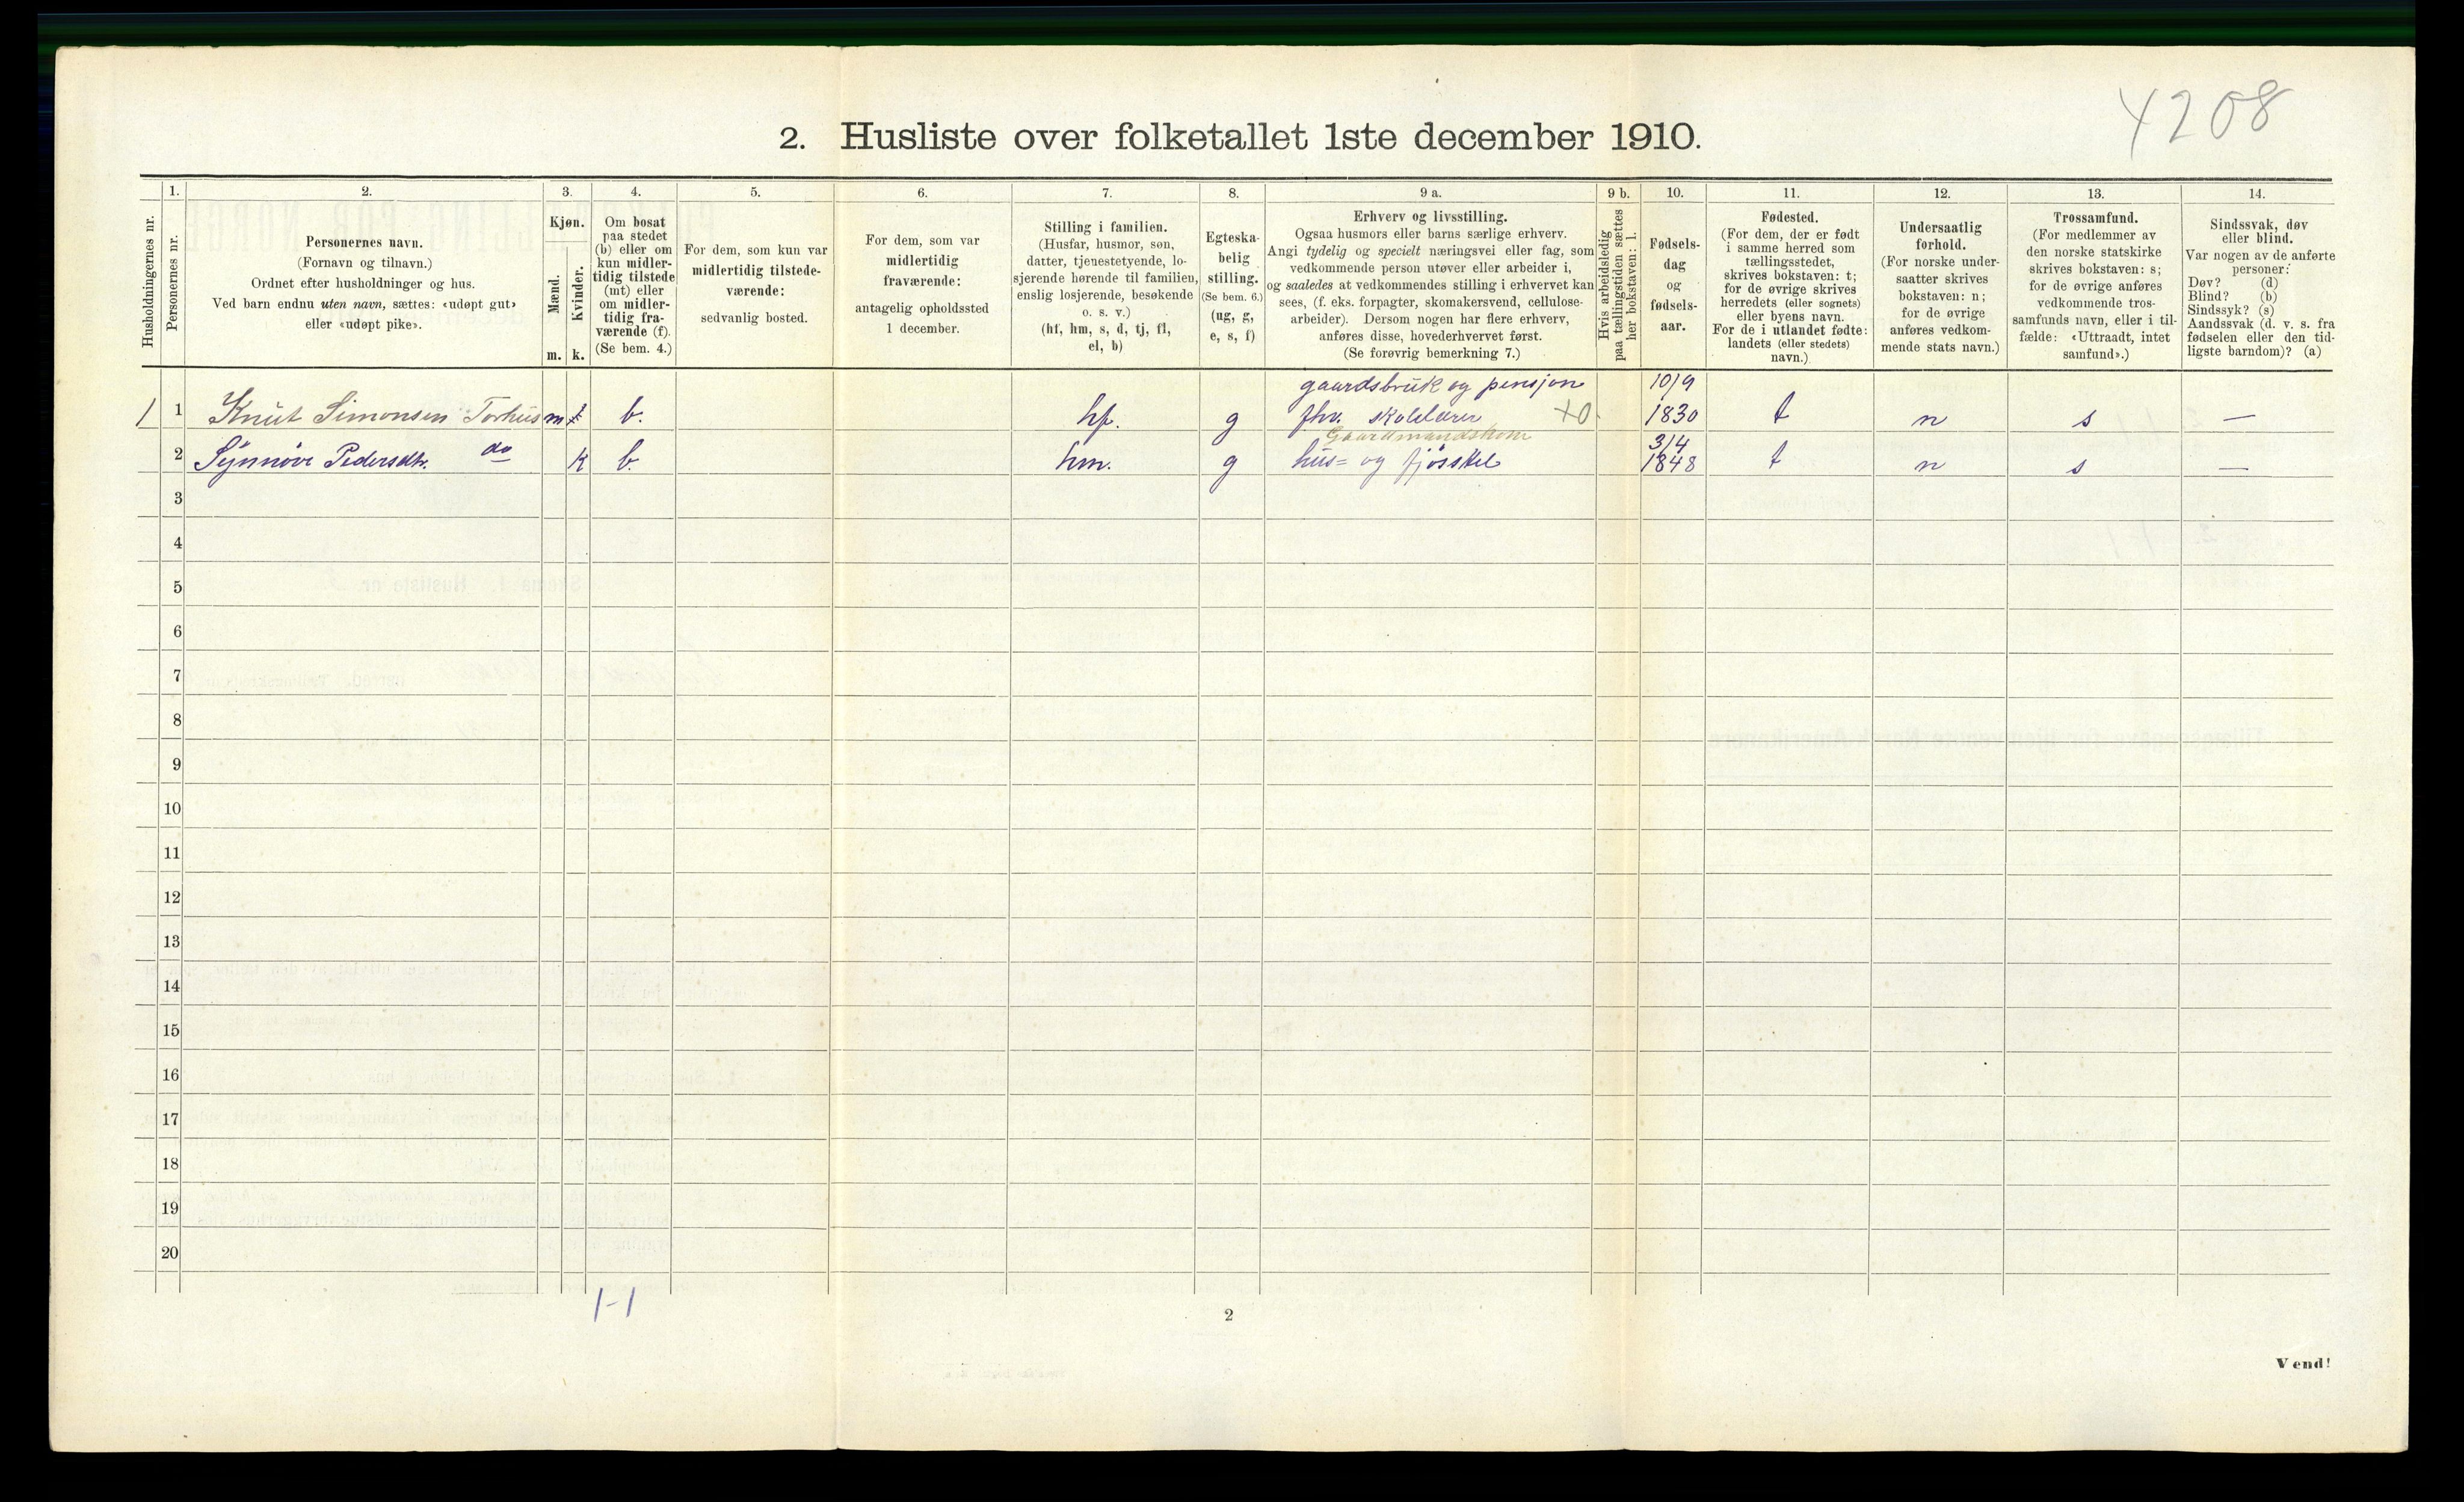 4208
2. Husliste over folketallet 1ste december 1910.
1. 2. 3. 4. 5. 6. 7. 8. 9 a. 9 b. 10. 11. 12. 13. 14.
Husholdningernes nr.
Personernes nr.
Personernes navn.
(Fornavn og tilnavn.)
Ordnet efter husholdninger og hus.
Ved barn endnu uten navn, sættes: «udøpt gut»
eller «udøpt pike».
Kjøn.
Mænd.
Kvinder.
m. k.
Om bosat
paa stedet
(b) eller om
kun midler-
tidig tilstede
(mt) eller
om midler-
tidig fra-
værende (f).
(Se bem. 4.)
For dem, som kun var
midlertidig tilstede-
værende:
sedvanlig bosted.
For dem, som var
midlertidig
fraværende:
antagelig opholdssted
1 december.
Stilling i familien.
(Husfar, husmor, søn,
datter, tjenestetyende, lo-
sjerende hørende til familien,
enslig losjerende, besøkende
o. s. v.)
(hf, hm, s, d, tj, fl,
el, b)
Egteska-
belig
stilling.
(Se bem. 6.)
(ug, g,
e, s, f)
Erhverv og livsstilling.
Ogsaa husmors eller barns særlige erhverv.
Angi tydelig og specielt næringsvei eller fag, som
vedkommende person utøver eller arbeider i,
og saaledes at vedkommendes stilling i erhvervet kan
sees, (f. eks. forpagter, skomakersvend, cellulose-
arbeider). Dersom nogen har flere erhverv,
anføres disse, hovederhvervet først.
(Se forøvrig bemerkning 7.)
Hvis arbeidsledig
paa tællingstiden sættes
her bokstaven: l.
Fødsels-
dag
og
fødsels-
aar.
Fødested.
(For dem, der er født
i samme herred som
tællingsstedet,
skrives bokstaven: t;
for de øvrige skrives
herredets (eller sognets)
eller byens navn.
For de i utlandet fødte:
landets (eller stedets)
navn.)
Undersaatlig
forhold.
(For norske under-
saatter skrives
bokstaven: n;
for de øvrige
anføres vedkom-
mende stats navn.)
Trossamfund.
(For medlemmer av
den norske statskirke
skrives bokstaven: s;
for de øvrige anføres
vedkommende tros-
samfunds navn, eller i til-
fælde: «Uttraadt, intet
samfund».)
Sindssvak, døv
eller blind.
Var nogen av de anførte
personer:
Døv? (d)
Blind? (b)
Sindssyk? (s)
Aandssvak (d. v. s. fra
fødselen eller den tid-
ligste barndom)? (a)
gaardsbruk og pensjon 10/9
1 1 Knut Simonsen Torhus m b. hf. g fhv. skolelærer +0. 1830 t n s —
Gaardmandskone 3/4
2 Synnøve Pedersdtr. do k b. hm. g hus= og fjøsstel 1848 t n s —
3
4
5
6
7
8
9
10
11
12
13
14
15
16
17
18
19
20
1-1
2
Vend!